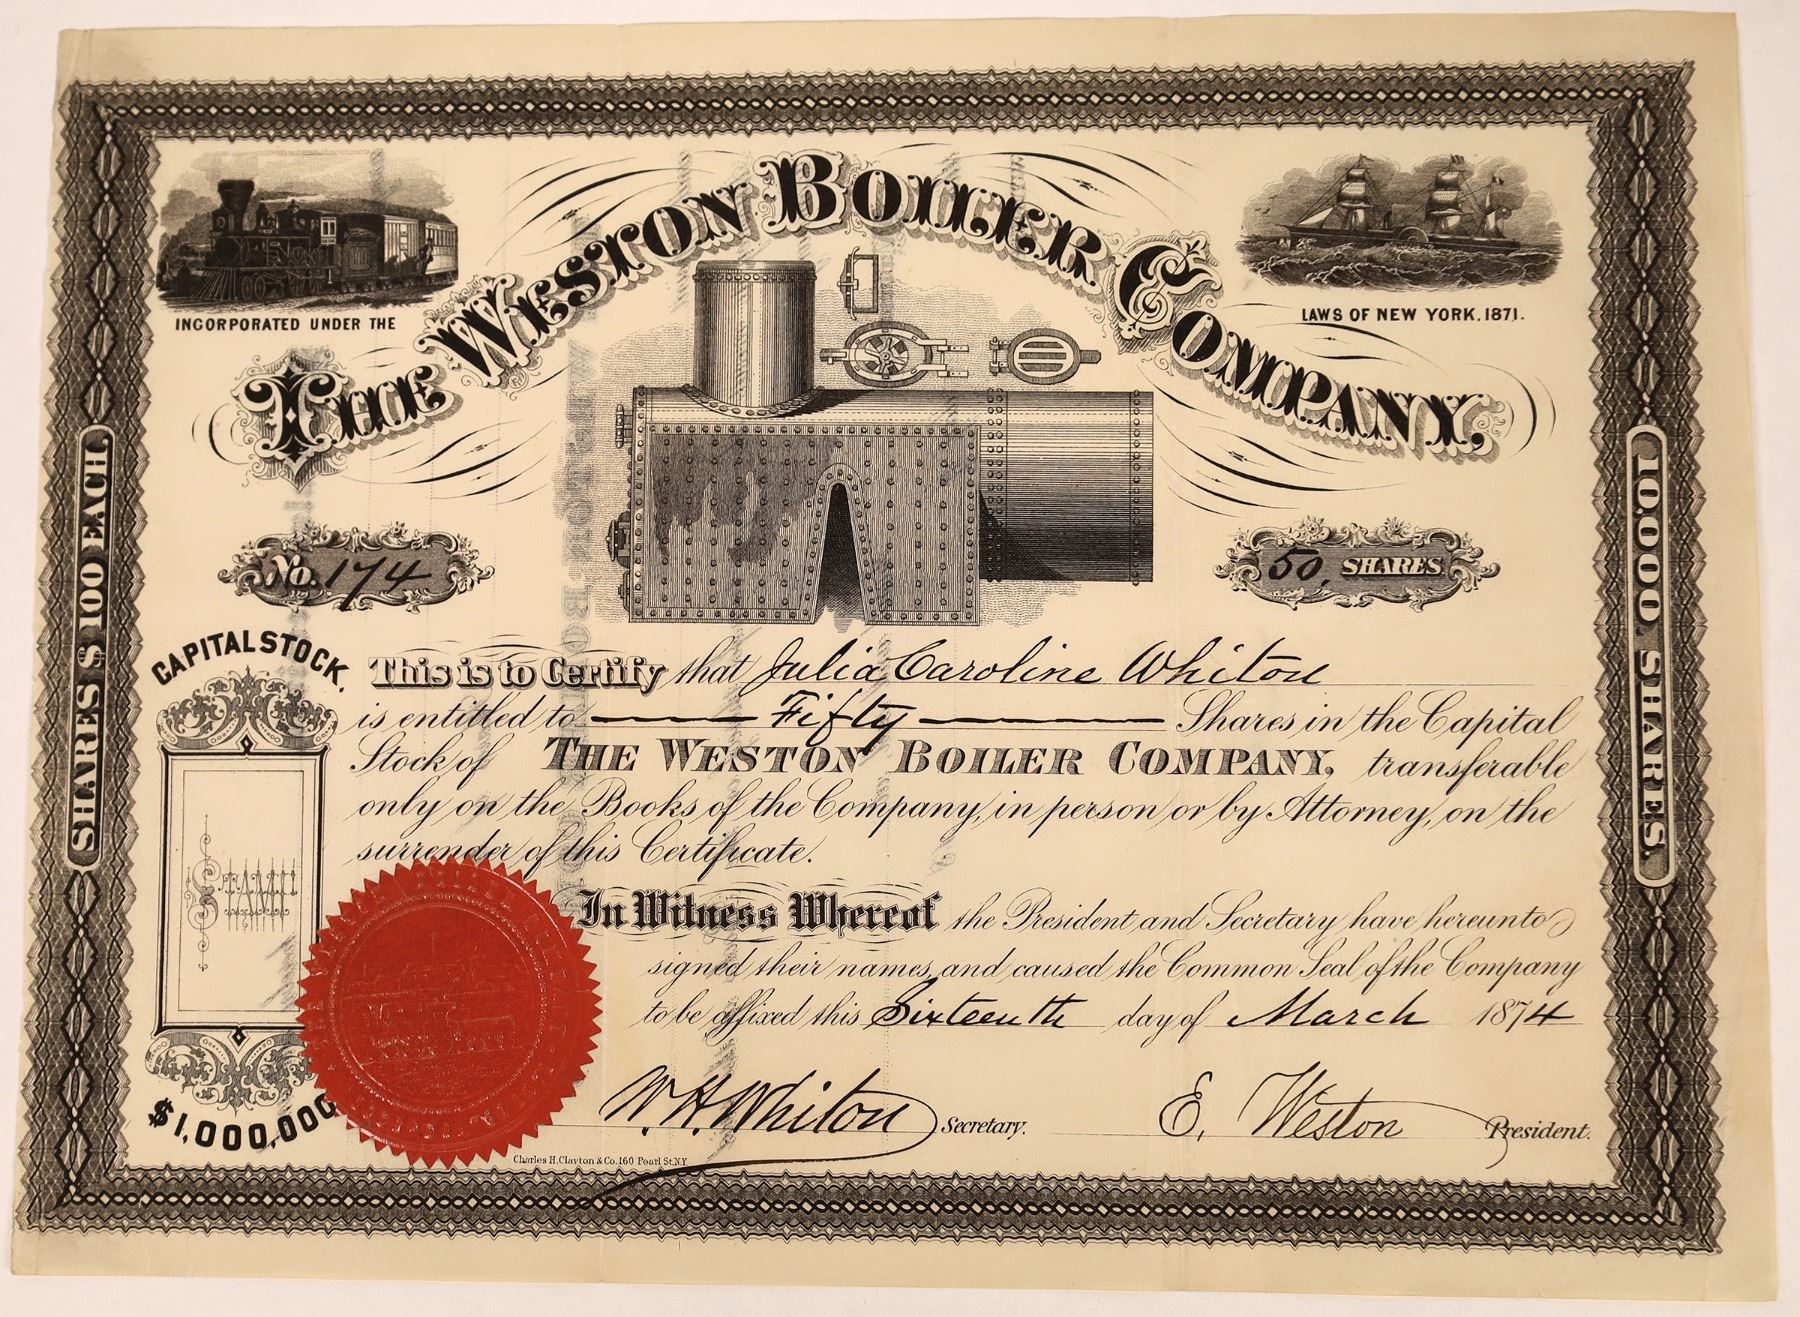 THE WESTON BOILER COMPANY,
INCORPORATED UNDER THE
LAWS OF NEW YORK, 1871.
SHARES $100 EACH.
10,000 SHARES.
No. 174
50, SHARES
CAPITAL STOCK.
STAMP
$1,000,000
This is to Certify that Julia Caroline Whiton
is entitled to Fifty Shares in the Capital
Stock of THE WESTON BOILER COMPANY, transferable
only on the Books of the Company, in person or by Attorney, on the
surrender of this Certificate.
In Witness Whereof the President and Secretary have hereunto
signed their names, and caused the Common Seal of the Company
to be affixed this Sixteenth day of March 1874
W. H. Whiton Secretary.
E. Weston President.
Charles H. Clayton & Co. 160 Pearl St. N.Y.